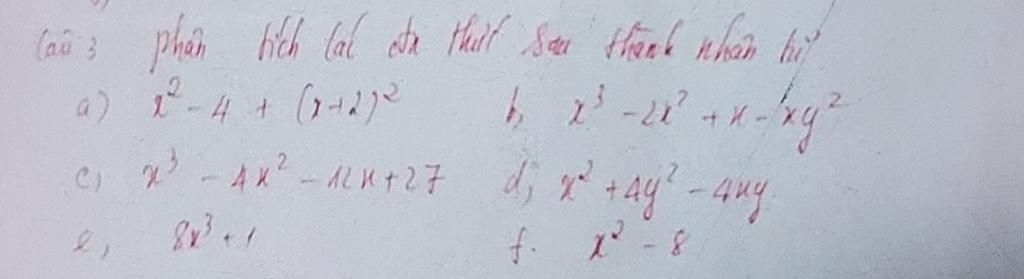 Câu 3 phân tích các đa thức sau thành nhân tử
a) x² - 4 + (x+2)² b, x³ - 2x² + x - xy²
c, x³ - 4x² - 12x + 27 d, x² + 4y² - 4xy
e, 8x³ + 1 f. x³ - 8